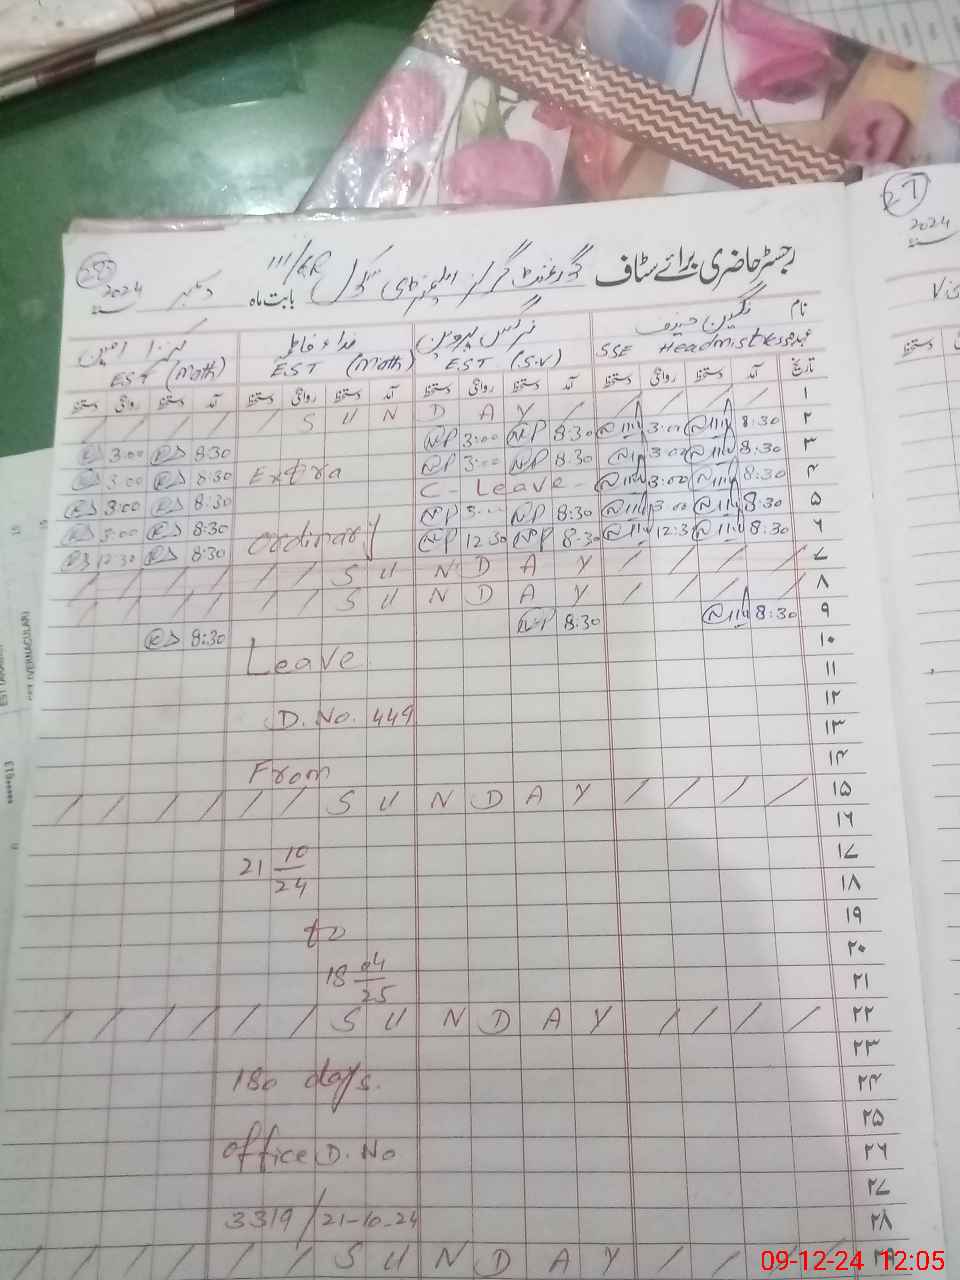 27
2024
رجسٹر حاضری برائے سٹاف گورنمنٹ گرلز ایلیمنٹری سکول 111/6R بابت ماہ دسمبر 2024
نام
SSE Headmistress
نرگس پروین
EST (S.V)
EST (Math)
EST (Math)
تاریخ آمد دستخط روانگی دستخط آمد دستخط روانگی دستخط آمد دستخط روانگی دستخط آمد دستخط روانگی دستخط
۱ S U N D A Y
۲ 8:30 3:00 8:30 NP 3:00 NP 8:30 3:00
۳ 8:30 3:00 8:30 NP 3:00 NP Extra 8:30 3:00
۴ 8:30 3:00 C- Leave- 8:30 3:00
۵ 8:30 3:00 8:30 NP 3:00 NP Ordinary 8:30 3:00
۶ 8:30 12:30 8:30 NP 12:30 NP 8:30 12:30
۷ S U N D A Y
۸ S U N D A Y
۹ 8:30 8:30 NP 8:30
۱۰ Leave
۱۱
۱۲ D. No. 449
۱۳
۱۴ From
۱۵ S U N D A Y
۱۶
۱۷ 21 10/24
۱۸
۱۹ to
۲۰
۲۱ 18 04/25
۲۲ S U N D A Y
۲۳
۲۴ 180 days.
۲۵
۲۶ office D. No
۲۷
۲۸ 3319/21-10-24
۲۹ S U N D A Y
09-12-24 12:05